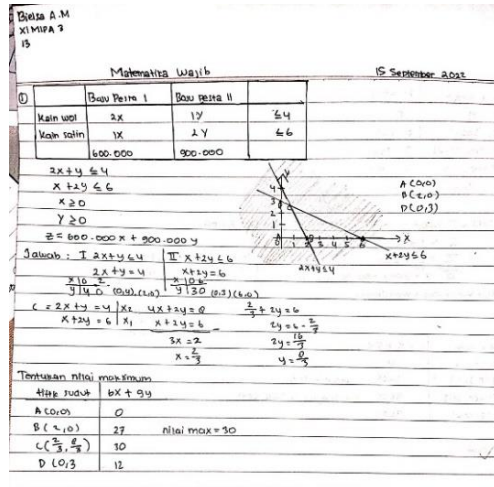 Bielsa A.M
XI MIPA 3
13
Matematika Wajib
15 September 2022
① Baju Pesta I Baju pesta II
Kain wol 2x 1y ≤4
Kain satin 1x 2y ≤6
600.000 900.000
2x+y ≤4
x+2y ≤6
x ≥0
y ≥0
z = 600.000x + 900.000y
4
3
2
1
0 1 2 3 4 5 6
X
Y
2x+y≤4
x+2y≤6
A (0,0)
B (2,0)
D (0,3)
Jawab : I 2x+y≤4 II x+2y≤6
2x+y=4 x+2y=6
x|0 2 x|0 6
y|4 0 (0,4),(2,0) y|3 0 (0,3)(6,0)
C = 2x+y = 4 |x2 4x+2y = 8
x+2y = 6 |x1 x+2y = 6
3x = 2
x = 2/3
2/3 + 2y = 6
2y = 6 - 2/3
2y = 16/3
y = 8/3
Tentukan nilai maksimum
titik sudut 6x + 9y
A (0,0) 0
B (2,0) 27 nilai max = 30
C (2/3, 8/3) 30
D (0,3 12